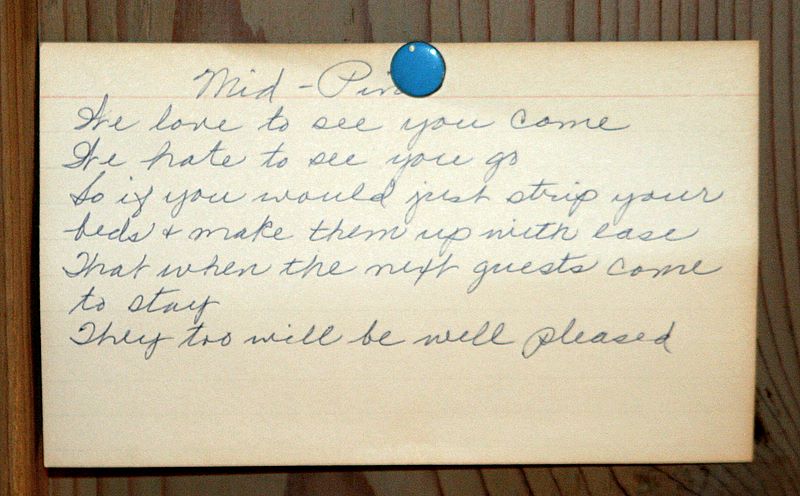 Mid - Pin
We love to see you come
We hate to see you go
So if you would just strip your
beds + make them up with ease
That when the next guests come
to stay
They too will be well pleased